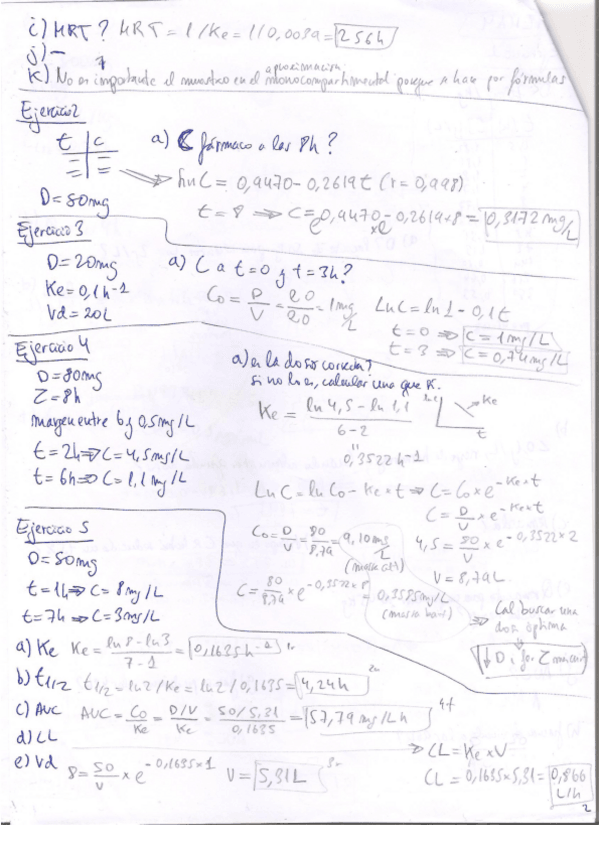 i) MRT? MRT = 1/Ke = 1/0,0039 = 256h
j) —
k) No es importante el muestreo en el monocompartimental porque se hace por fórmulas
aproximación
Ejercicio 2
t | c
a) C fármaco a las 8h?
lnC = 0,9470 - 0,2619t (r = 0,998)
D = 50mg
t = 8 ⇒ C = e^0,9470 - 0,2619×8 = 0,3172 mg/L
Ejercicio 3
D = 20mg
Ke = 0,1 h-1
Vd = 20L
a) C a t=0 y t=3h?
Co = D/V = 20/20 = 1mg/L
LnC = ln1 - 0,1t
t = 0 ⇒ C = 1mg/L
t = 3 ⇒ C = 0,74mg/L
Ejercicio 4
D = 80mg
τ = 8h
margen entre 6 y 0,5mg/L
t = 2h ⇒ C = 4,5mg/L
t = 6h ⇒ C = 1,1mg/L
a) es la dosis correcta?
si no lo es, calcular una que sí.
Ke = ln 4,5 - ln 1,1 / 6-2
= 0,3522 h-1
ln C
Ke
t
LnC = lnCo - Ke×t ⇒ C = Co × e^-Ke×t
C = D/V × e^-Ke×t
Co = D/V = 80/8,79 = 9,10mg/L
4,5 = 80/V × e^-0,3522×2
V = 8,79L
C = 80/8,79 × e^-0,3522×8 = 0,5585mg/L
⇒ Cal buscar una
dosi òptima
↓D, fer τ
Ejercicio 5
D = 50mg
t = 1h ⇒ C = 8mg/L
t = 7h ⇒ C = 3mg/L
a) Ke Ke = ln8 - ln3 / 7-1 = 0,1635h-1 1r
b) t1/2 t1/2 = ln2/Ke = ln2/0,1635 = 4,24h 2n
c) AUC AUC = Co/Ke = D/V/Ke = 50/5,31/0,1635 = 57,79 mg/L h 4t
d) CL
⇒ CL = Ke × V
e) Vd 8 = 50/V × e^-0,1635×1 V = 5,31L 3r
CL = 0,1635×5,31 = 0,866 L/h
2